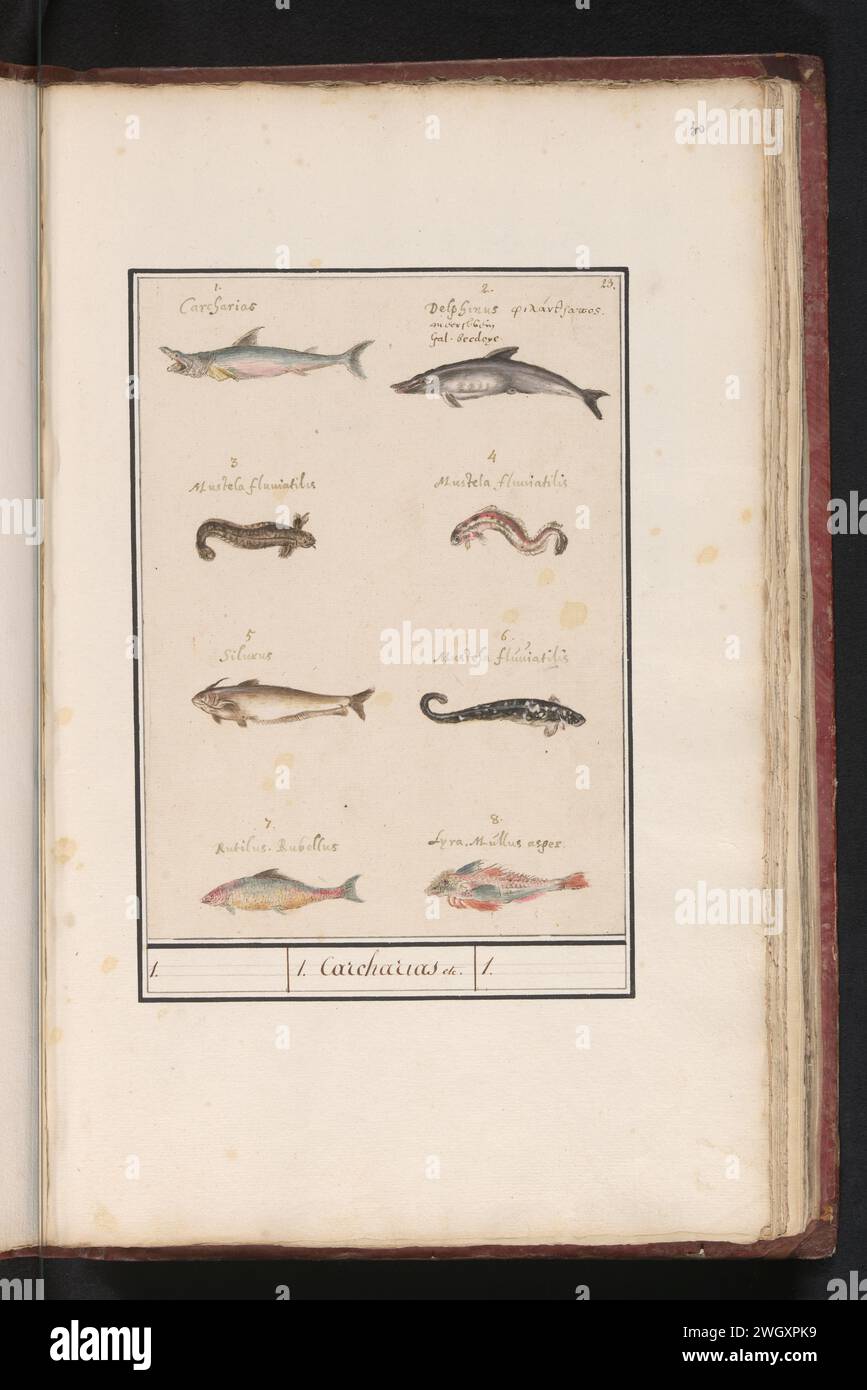 40
23.
1.
Carcharias
2.
Delphinus φιλάνθρωπος.
Gal.
3
Mustela fluuiatilis
4
Mustela fluuiatilis
5
Silurus
6.
Mustela fluuiatilis
7.
Rutilus. Rubellus
8.
Lyra. Mullus asper.
1.
1. Carcharias etc.
1.
alamy
Image ID: 2WGXPK9
www.alamy.com